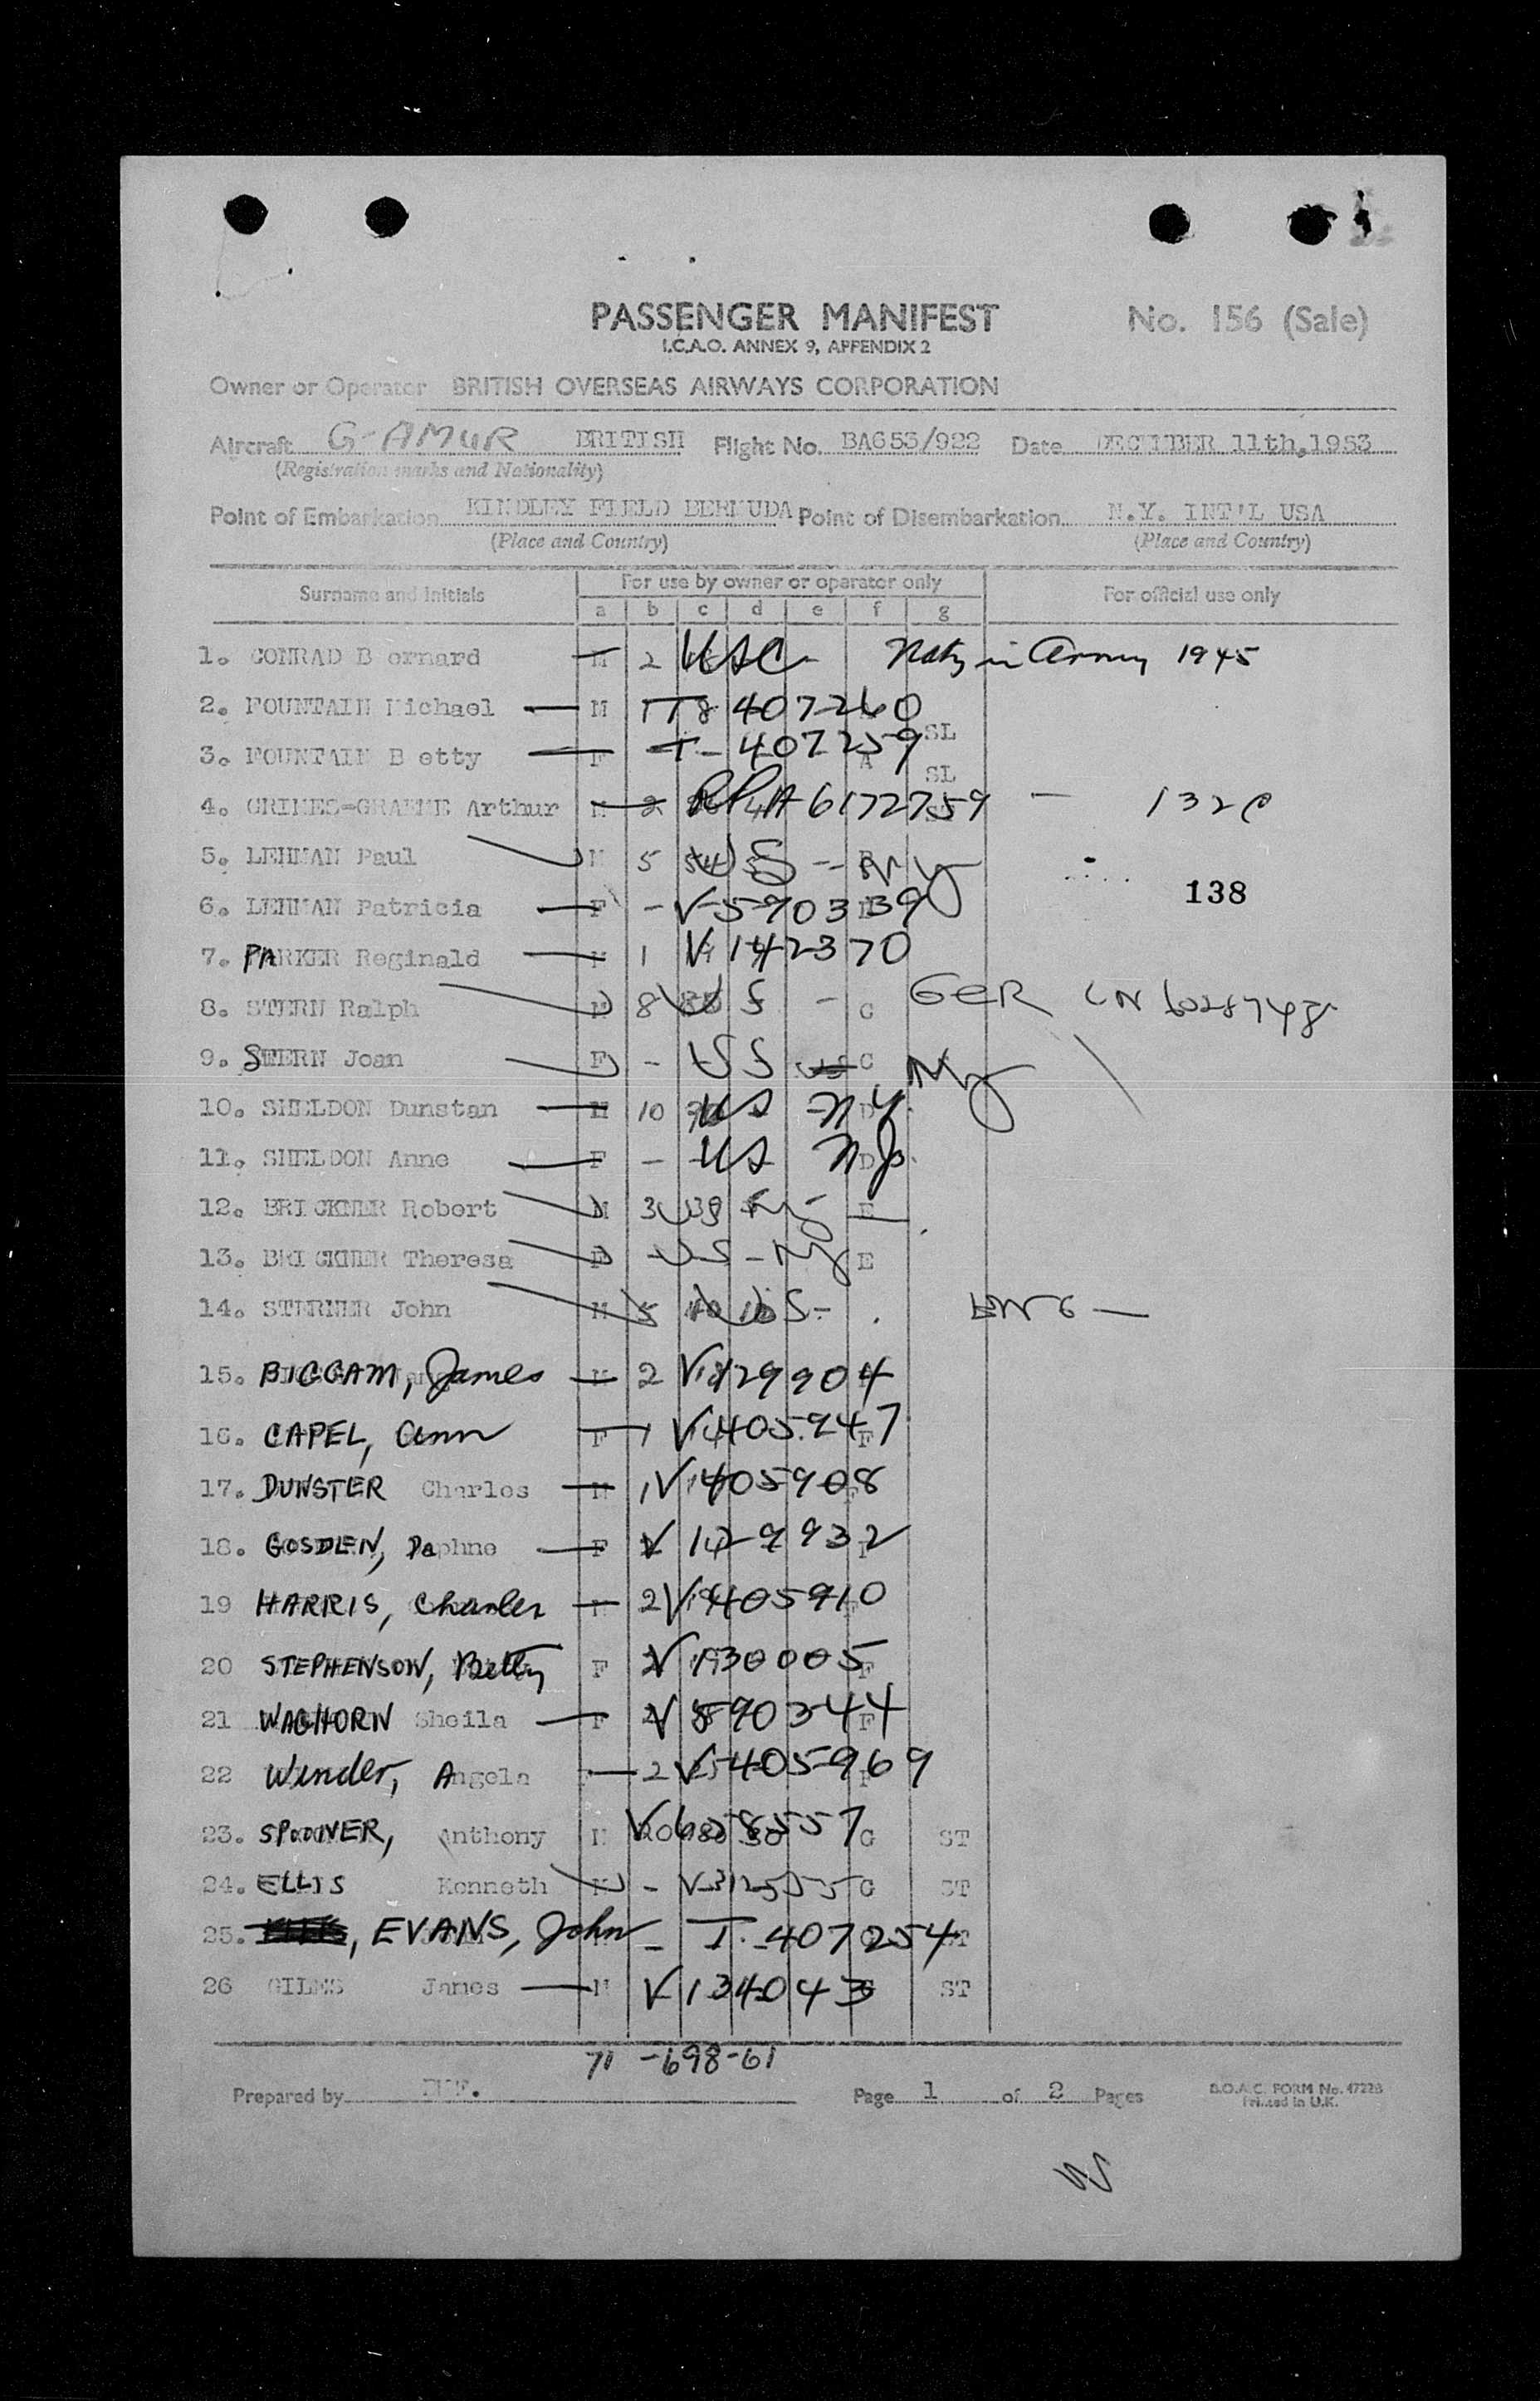 PASSENGER MANIFEST No. 156 (Sale)
I.C.A.O. ANNEX 9, APPENDIX 2
Owner or Operator BRITISH OVERSEAS AIRWAYS CORPORATION
Aircraft G-AMUR BRITISH Flight No. BA653/922 Date DECEMBER 11th,1953
(Registration marks and Nationality)
Point of Embarkation KINDLEY FIELD BERMUDA Point of Disembarkation N.Y. INT'L USA
(Place and Country) (Place and Country)
Surname and initials For use by owner or operator only For official use only
a b c d e f g
1. CONRAD Bernard M 2 USC - Natz in Army 1945
2. FOUNTAIN Michael M 1 T 407260 SL
3. FOUNTAIN Betty F T- 407259 A SL
4. GRIMES-GRAEME Arthur M 2 A6172759 - 132
5. LEHMAN Paul M 5 US - NY
138
6. LEHMAN Patricia F - V-590339
7. PARKER Reginald M 1 V 142370
8. STERN Ralph M 8 US - C GER CN 6028748
9. STERN Joan F - US C NY
10. SHELDON Dunstan M 10 US NY D
11. SHELDON Anne F - US NJ D
12. BRICKNER Robert M 3 US NY - E
13. BRICKNER Theresa F - US - NY E
14. STERNER John M 5 US -
15. BIGGAM, James M 2 V 129904
16. CAPEL, Ann F 1 V 405947 F
17. DUNSTER Charles M 1 V 405908
18. GOSDEN, Daphne F V 129932
19 HARRIS, Charles M 2 V 405910
20 STEPHENSON, Betty F V 130005 F
21 WAGHORN Sheila F V 890344 F
22 Winder, Angela F 2 V 405969
23. SPOONER, Anthony M V 658557 G ST
24. ELLIS Kenneth M - V 3125555 G ST
25. EVANS, John - T. 407254 ST
26 GILES James M V 134043 ST
71 -698-61
Prepared by Page 1 of 2 Pages B.O.A.C. FORM No. 4722B
Printed in U.K.